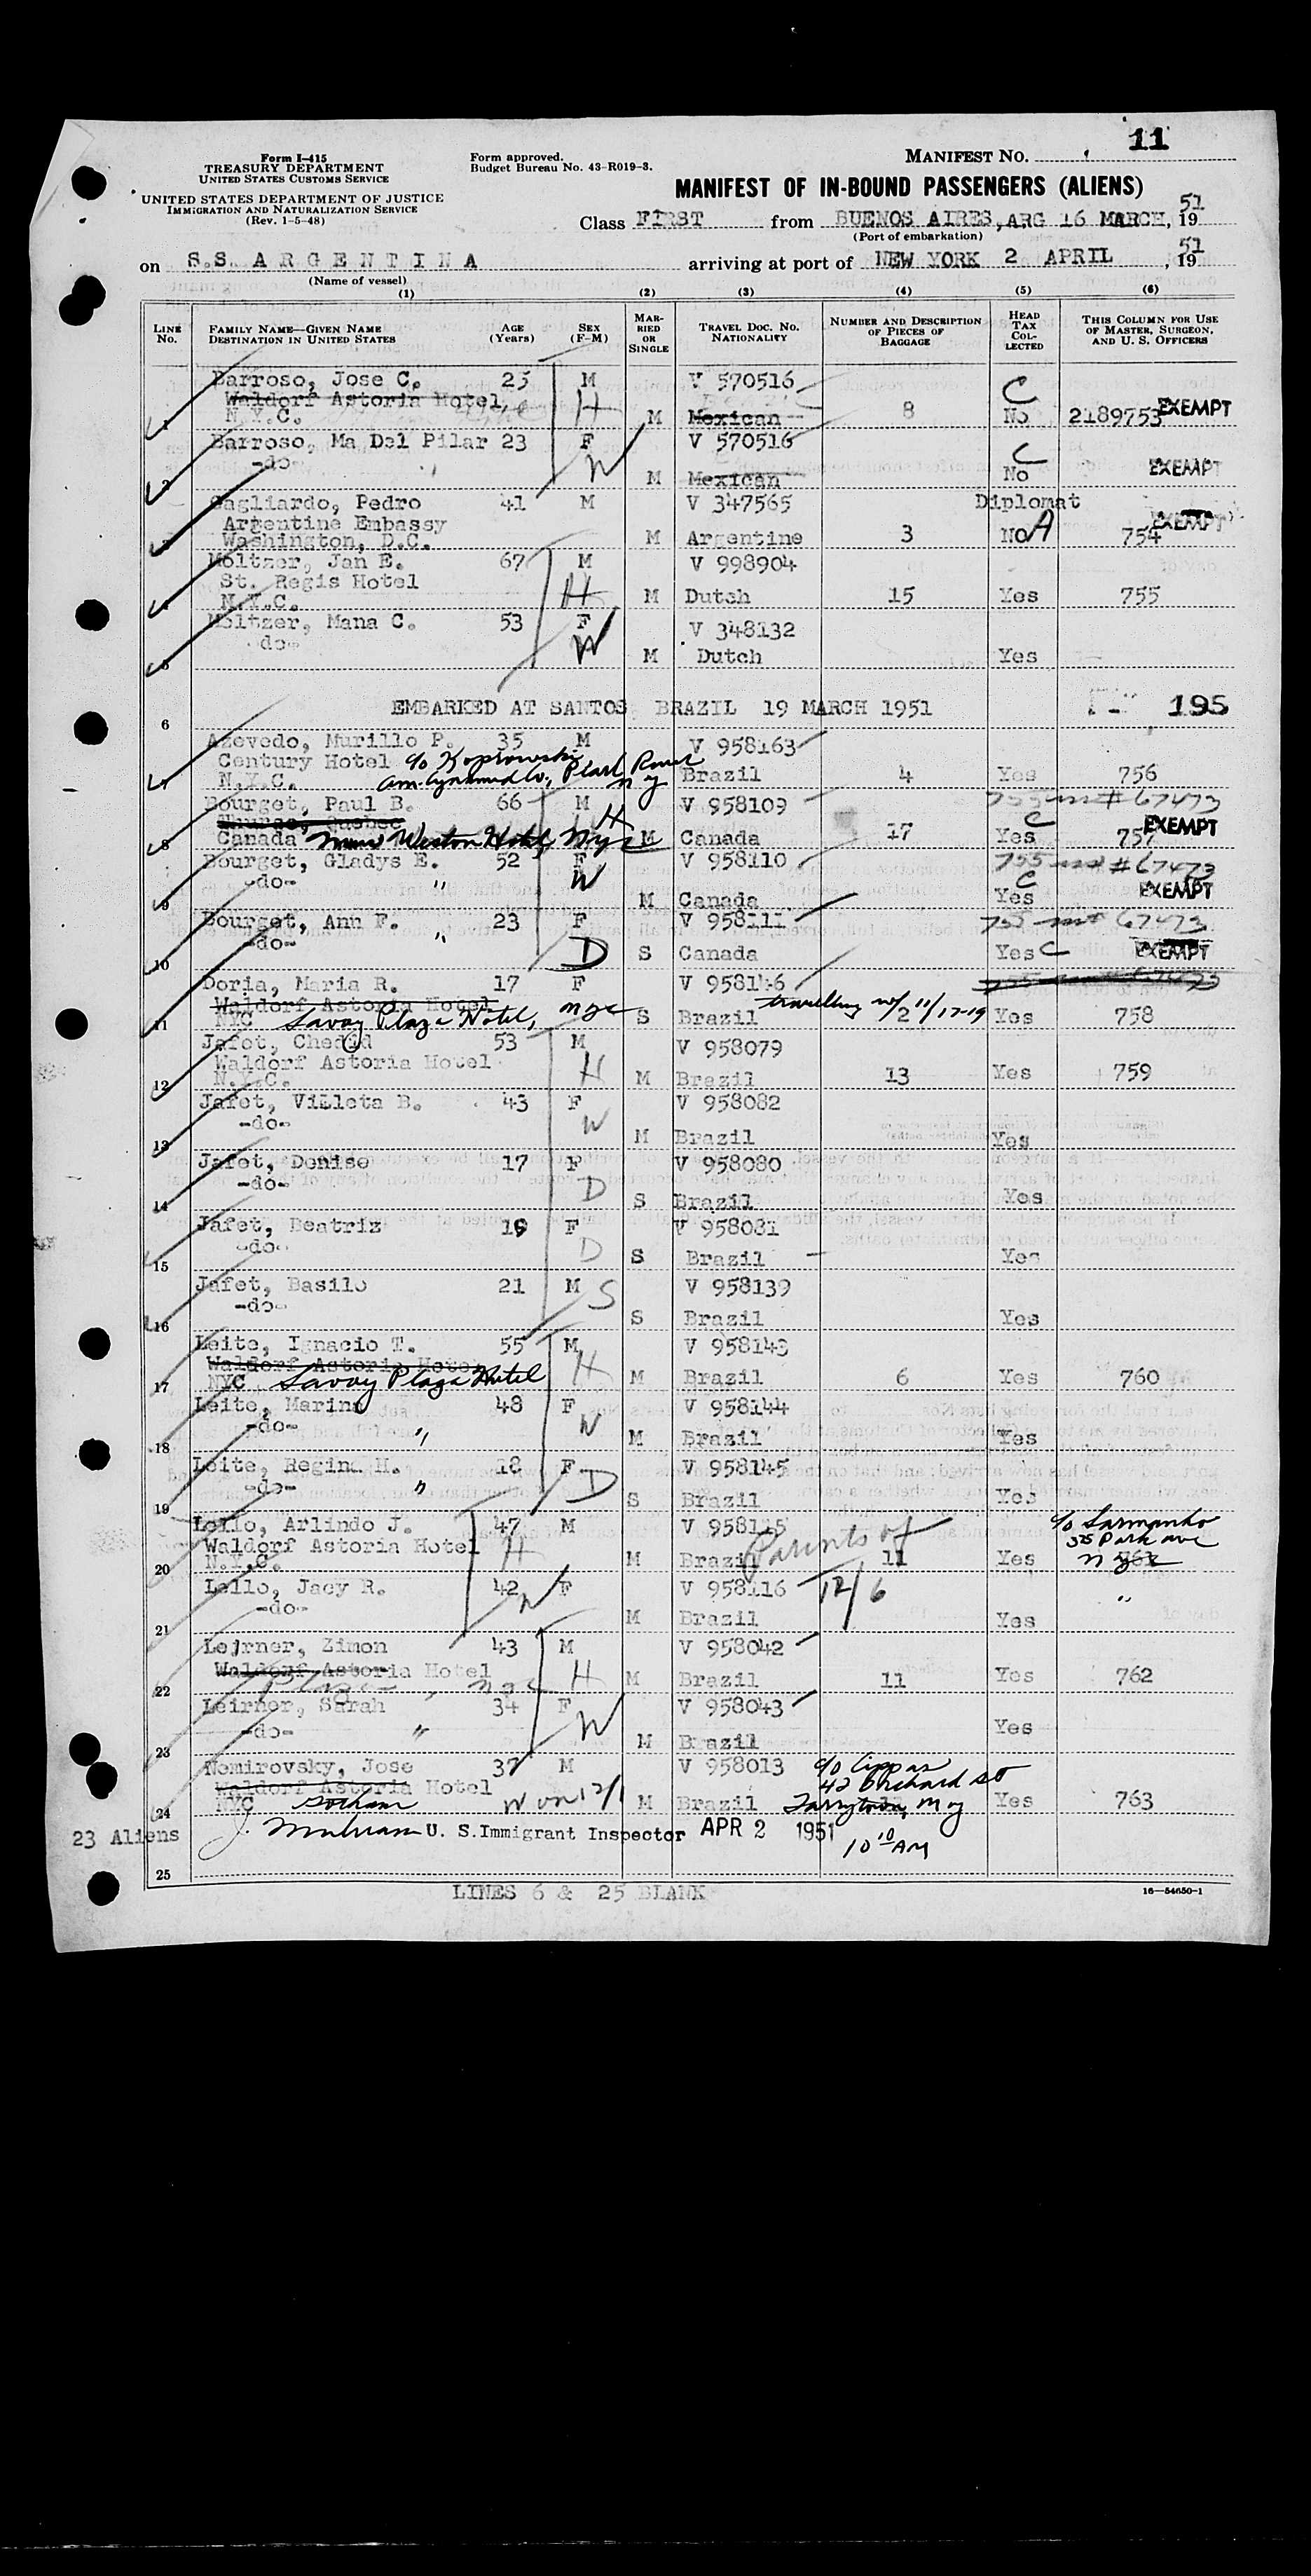 11
Form I-415
TREASURY DEPARTMENT
UNITED STATES CUSTOMS SERVICE
Form approved.
Budget Bureau No. 43-R019-3.
MANIFEST NO.
UNITED STATES DEPARTMENT OF JUSTICE
IMMIGRATION AND NATURALIZATION SERVICE
(Rev. 1-5-48)
MANIFEST OF IN-BOUND PASSENGERS (ALIENS)
Class FIRST from BUENOS AIRES, ARG 16 MARCH, 1951
(Port of embarkation)
on S.S. ARGENTINA arriving at port of NEW YORK 2 APRIL, 1951
(Name of vessel)
(1) (2) (3) (4) (5) (6)
LINE No. FAMILY NAME—GIVEN NAME DESTINATION IN UNITED STATES AGE (Years) SEX (F-M) MARRIED OR SINGLE TRAVEL DOC. NO. NATIONALITY NUMBER AND DESCRIPTION OF PIECES OF BAGGAGE HEAD TAX COLLECTED THIS COLUMN FOR USE OF MASTER, SURGEON, AND U. S. OFFICERS
Barroso, Jose C. 25 M V 570516 C
Waldorf Astoria Hotel, H
1 N.Y.C. M Mexican 8 No 2189753 EXEMPT
Barroso, Ma Del Pilar 23 F V 570516 C
2 -do- " W M Mexican No EXEMPT
Gagliardo, Pedro 41 M V 347565 Diplomat
Argentine Embassy EXEMPT
3 Washington, D.C. M Argentine 3 No A 754
Moltzer, Jan E. 67 M V 998904
St. Regis Hotel H
4 N.Y.C. M Dutch 15 Yes 755
Moltzer, Mana C. 53 F V 348132
-do- W
5 M Dutch Yes
6 EMBARKED AT SANTOS BRAZIL 19 MARCH 1951 195
Azevedo, Murillo P. 35 M V 958163
Century Hotel c/o Koprowski
7 N.Y.C. Am. Cynamid Co., Pearl River N Y Brazil 4 Yes 756
Bourget, Paul B. 66 M V 958109 # 67473
H C
8 Canada Weston Hotel, Nyc M Canada 17 Yes 757 EXEMPT
Bourget, Gladys E. 52 F V 958110 # 67473
9 -do- " W M Canada C Yes EXEMPT
Bourget, Ann F. 23 F V 958111 67473
10 -do- " D S Canada Yes C EXEMPT
Doria, Maria R. 17 F V 958146
Waldorf Astoria Hotel travelling w/ 11/17-19
11 NYC Savoy Plaza Hotel, nyc S Brazil 2 Yes 758
Jafet, Chedid 53 M V 958079
Waldorf Astoria Hotel H
12 N.Y.C. M Brazil 13 Yes 759
Jafet, Violeta B. 43 F V 958082
-do- W
13 M Brazil Yes
Jafet, Denise 17 F V 958080
-do- D
14 S Brazil Yes
Jafet, Beatriz 19 F V 958081
-do- D
15 S Brazil Yes
Jafet, Basilo 21 M S V 958139
-do-
16 S Brazil Yes
Leite, Ignacio T. 55 M V 958143
Waldorf Astoria Hotel H
17 NYC Savoy Plaza Hotel M Brazil 6 Yes 760
Leite, Marina 48 F V 958144
-do- " W
18 M Brazil Yes
Leite, Regina H. 18 F V 958145
-do- " D
19 S Brazil Yes
Lello, Arlindo J. 47 M V 958115 c/o Sarmanho
Waldorf Astoria Hotel H Parents of 375 Park ave
20 N.Y.C. M Brazil 11 Yes nyc
Lello, Jacy R. 42 W F V 958116 12/6 "
-do-
21 M Brazil Yes
Leirner, Zimon 43 M V 958042
Waldorf Astoria Hotel H
22 Plaza " nyc M Brazil 11 Yes 762
Leirner, Sarah 34 F V 958043
-do- " W Yes
23 M Brazil
Nemirovsky, Jose 37 M V 958013 c/o
Waldorf Astoria Hotel 42 Orchard St
24 NYC Gotham W on 12/1 M Brazil Tarrytown, N y Yes 763
23 Aliens U. S. Immigrant Inspector APR 2 1951
10 10 AM
25
LINES 6 & 25 BLANK
16—54650-1